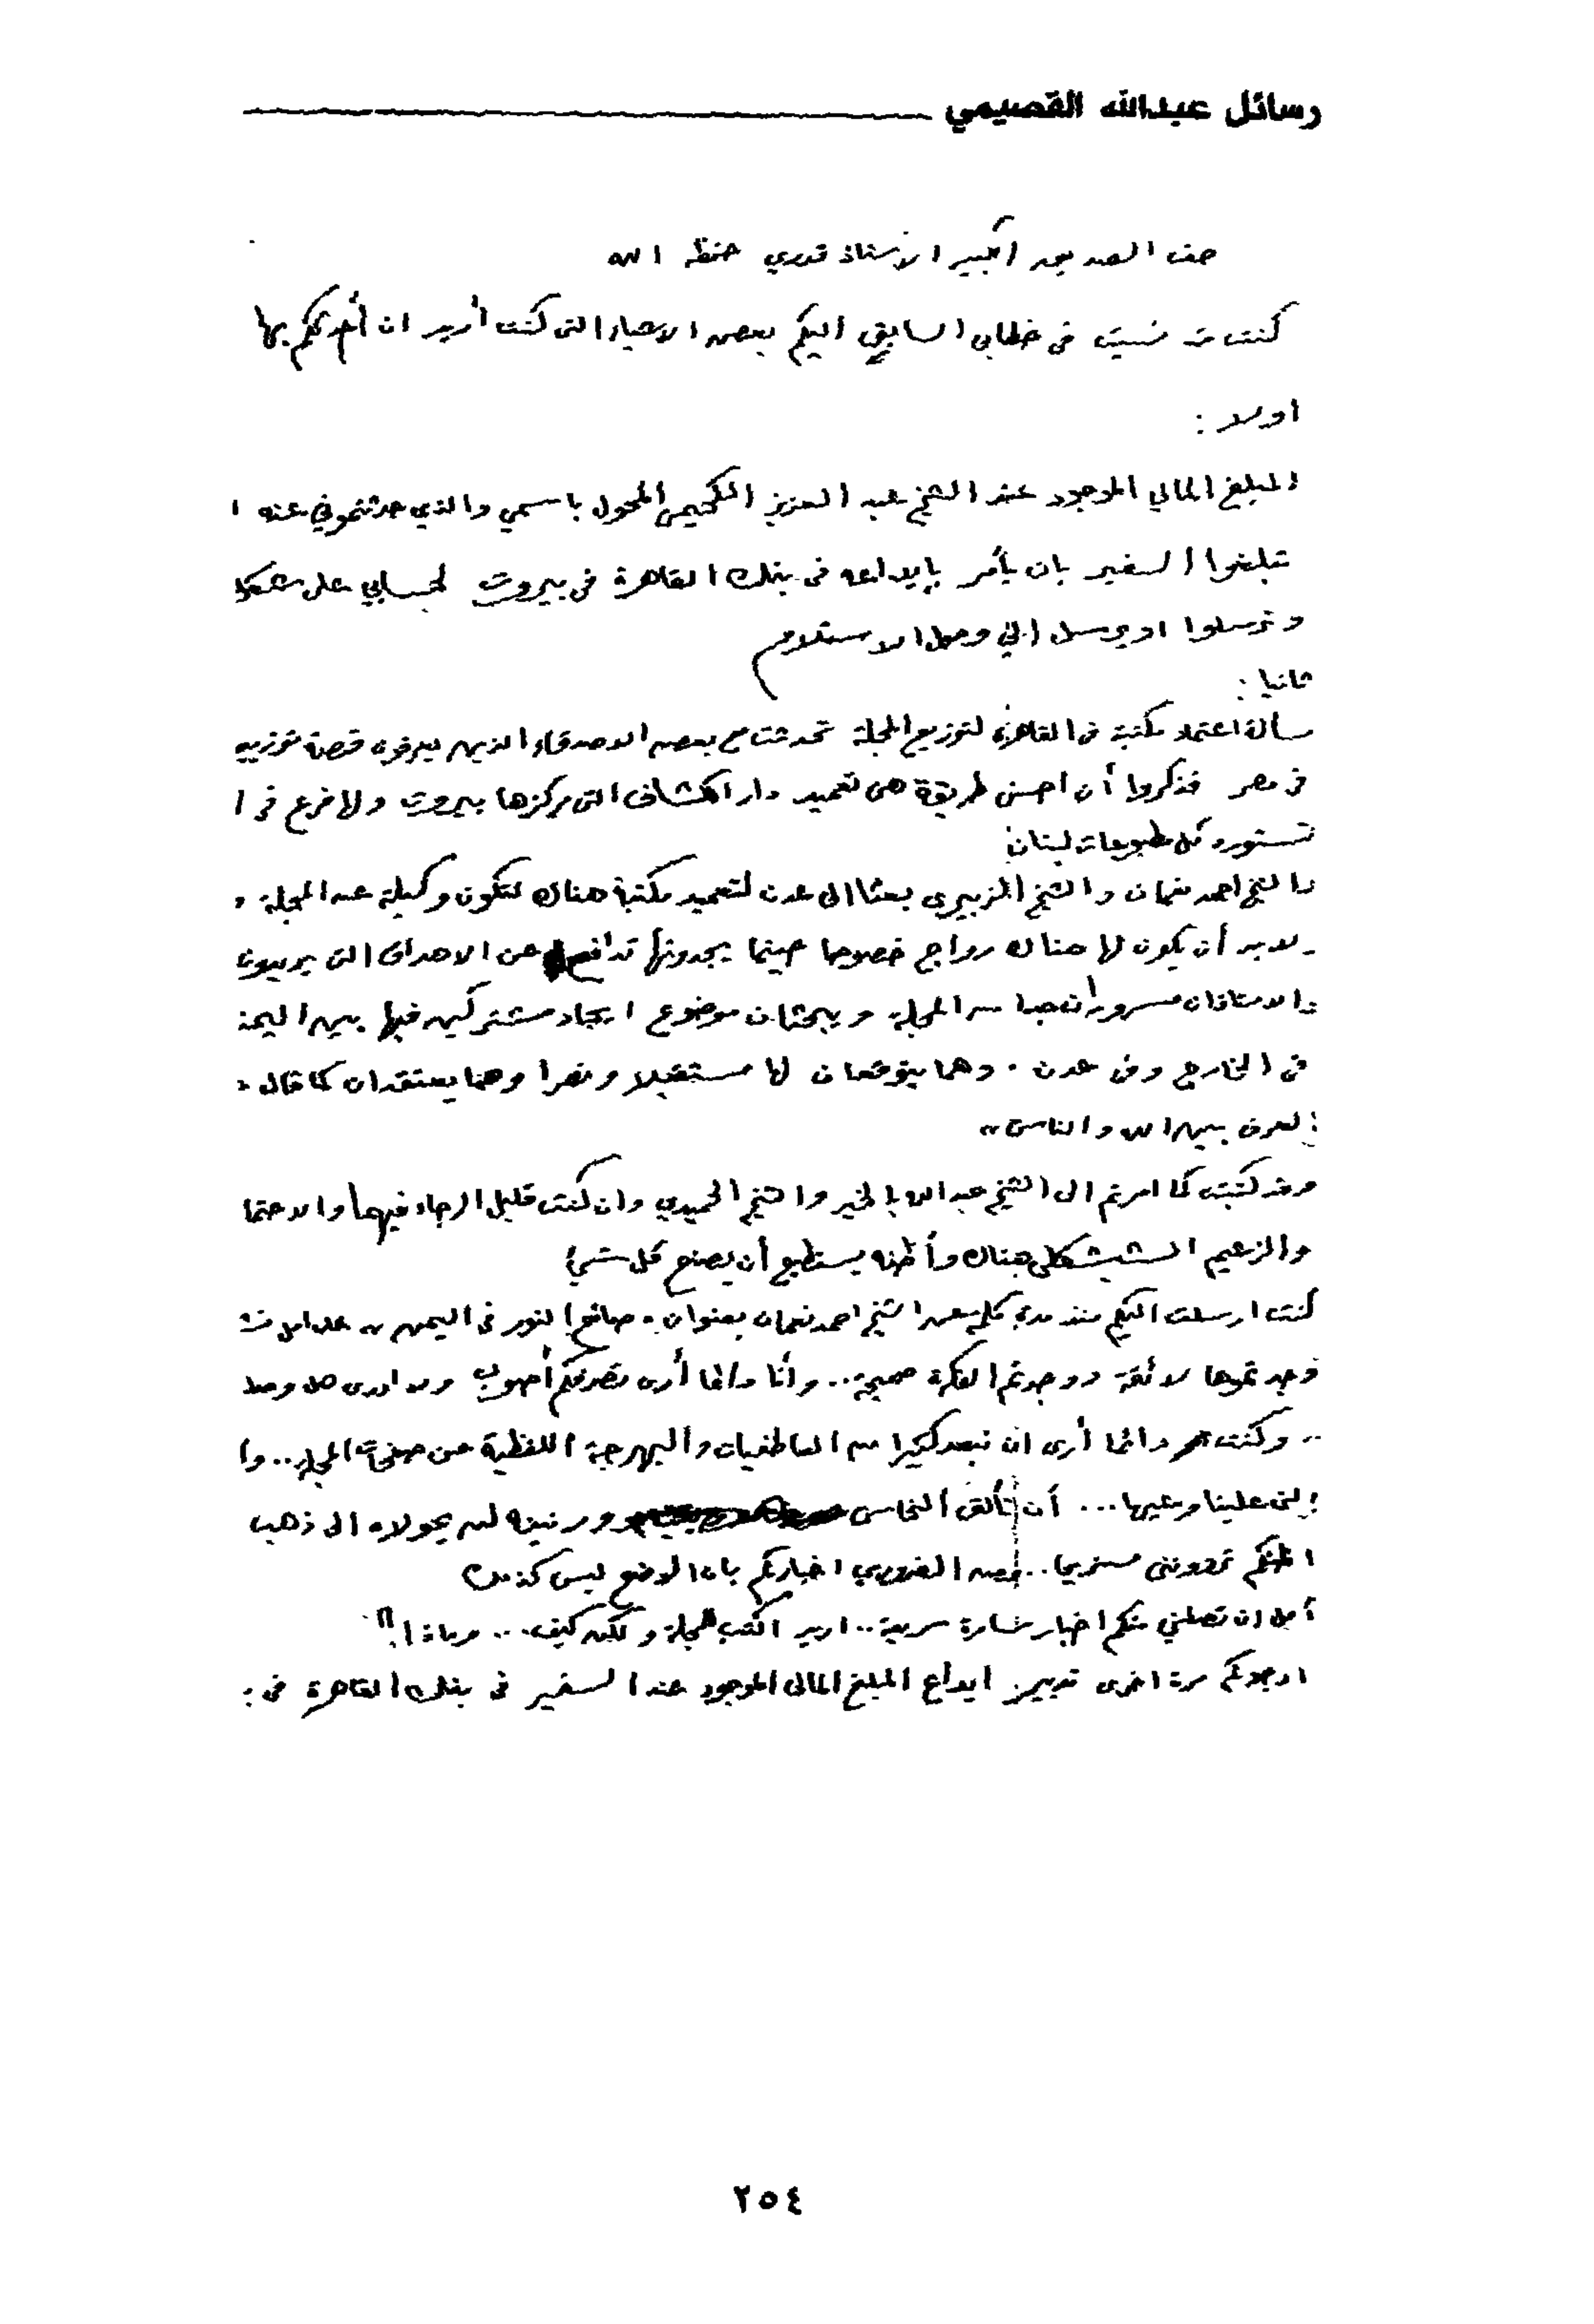 رسائل عبدالله القصيمي
الكبير الاستاذ قدري حفظه الله
كنت قد نسيت في خطابي السابق اليكم بعض الاشياء التي كنت أريد ان أحدثكم بها
اولا :
المبلغ المالي الموجود عند الشيخ عبد العزيز المحول باسمي والذي حدثتموني عنه ا
تبلغوا السفير بان يأمر بإيداعه في بنك القاهرة في بيروت لحسابي على
وترسلوا او يرسل إلي وصل الاستلام
ثانيا :
سألة اعتماد مكتبة في القاهرة لتوزيع المجلة تحدثت مع بعض الاصدقاء الذين يعرفون قصة
في مصر فذكروا أن احسن طريقة هي تعميد دار الكشاف التي مركزها بيروت ولها فرع في ا
تستورد كل مطبوعات لبنان
الشيخ احمد نعمان والشيخ الزبيري بعثا الى عدن لتعميد مكتبة هناك لتكون وكيلة عن المجلة و
لابد أن يكون لها هناك رواج خصوصا حينما يجدونها تدافع عن الاهداف التي يريدون
والاستاذان مسروران جدا من المجلة ويبحثان موضوع ايجاد مشتركين فيها بين اليمن
في الخارج وفي عدن . وهما يتوقعان لها مستقبلا ونصرا وهما يعتقدان كما قال
العرف بين الله والناس
وقد كتبت كما امرتم الى الشيخ عبدالله بالخير والشيخ الحميدي وان كنت قليل الرجاء فيهما والاحتما
والزعيم الشيشكلي هناك وأظنه يستطيع أن يصنع كل شيء
كنت ارسلت اليكم منذ مدة كلمة عن الشيخ احمد نعمان بعنوان " صانع النور في اليمن "
وجدتموها لائقة ووجدتم الفكرة صحيحة .. وأنا دائما أرى أصوب ولا ادري هل وصل
.. وكنت دائما أرى ان نبعد كثيرا من العاطفيات والبهرجة اللفظية عن صفحات المجلة .. وا
علينا وعليها ... أن تألق النحاس ورنينه لن يحولاه الى ذهب
اظنكم تروونني مستريحا .. فمن الضروري اخباركم بان الوضع ليس كذلك
آمل ان تصلني منكم اخبار سارة سريعة .. اريد اكتب للمجلة ولكن كيف .. وماذا !!
ارجوكم مرة اخرى ايداع المبلغ المالي الموجود عند السفير في بنك القاهرة في
٢٥٤